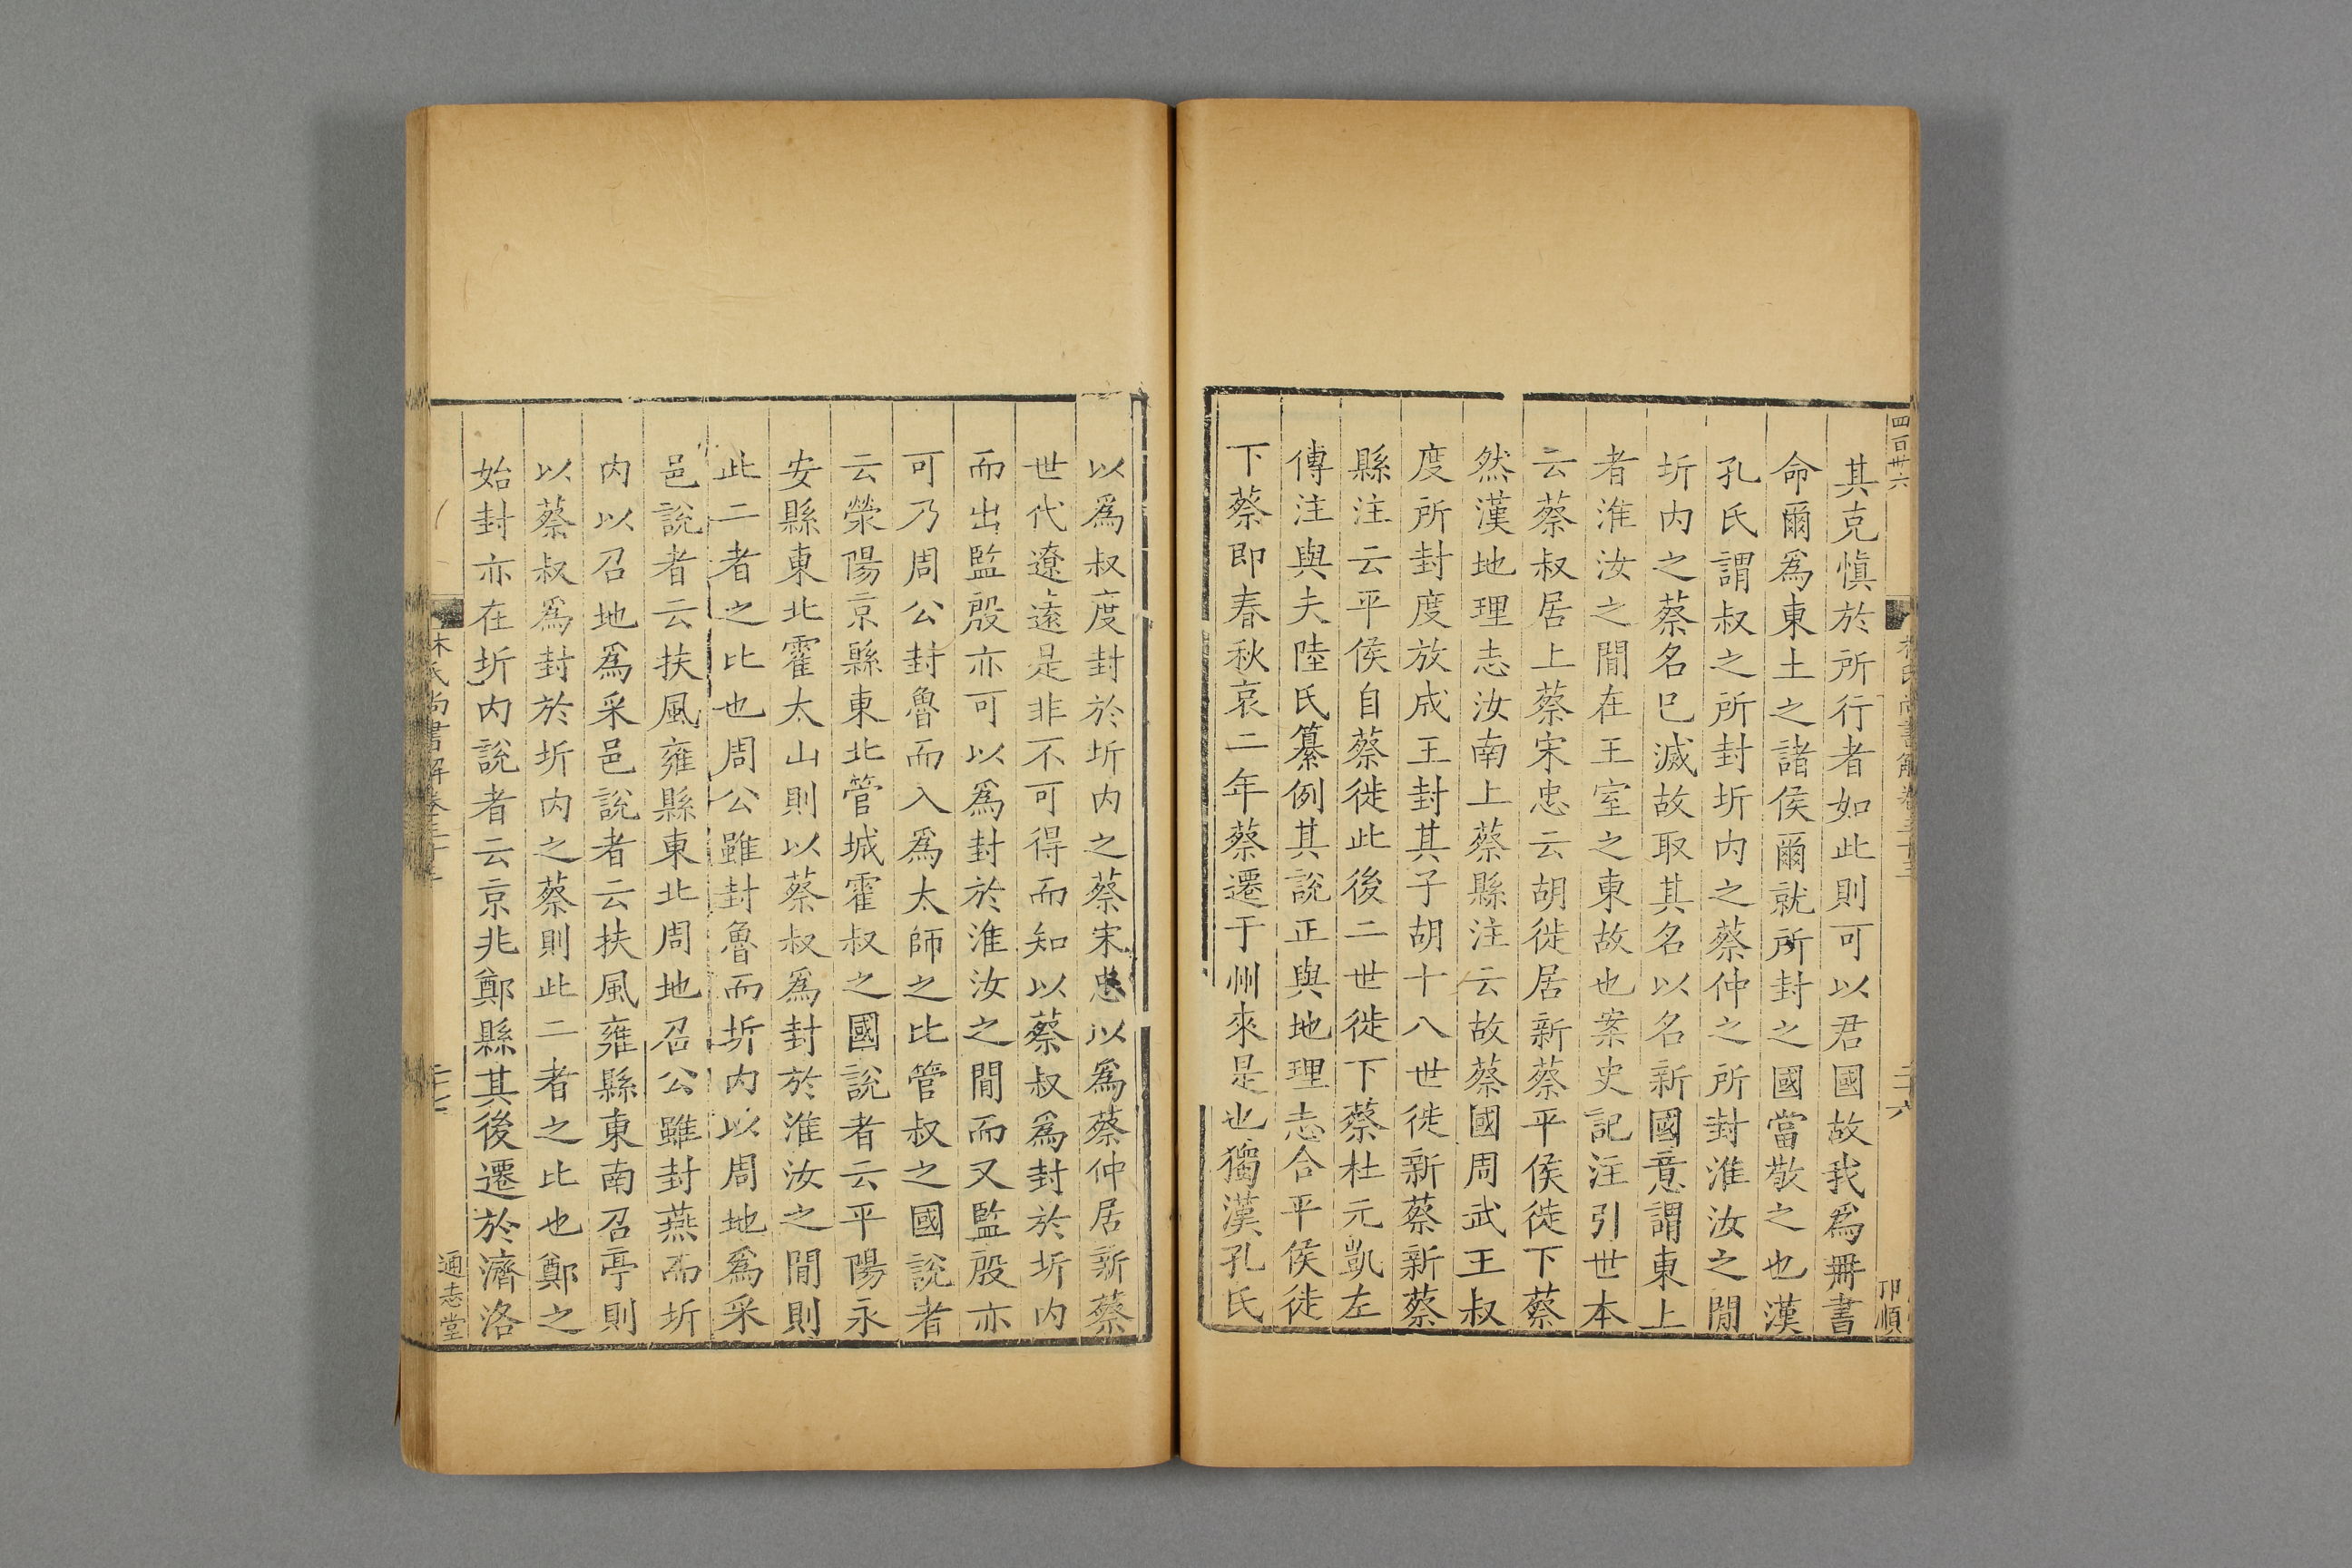 四百卅六
其克愼於所行者如此則可以君國故我爲冊書
命爾爲東土之諸侯爾就所封之國當敬之也漢
孔氏謂叔之所封圻内之蔡仲之所封淮汝之閒
圻内之蔡名已滅故取其名以名新國意謂東上
者淮汝之閒在王室之東故也案史記注引世本
云蔡叔居上蔡宋忠云胡徙居新蔡平侯徙下蔡
然漢地理志汝南上蔡縣注云故蔡國周武王叔
度所封度放成王封其子胡十八世徙新蔡新蔡
縣注云平侯自蔡徙此後二世徙下蔡杜元凱左
傳注與夫陸氏纂例其說正與地理志合平侯徙
下蔡即春秋哀二年蔡遷于州來是也獨漢孔氏
以爲叔度封於圻内之蔡宋忠以爲蔡仲居新蔡
世代遼遠是非不可得而知以蔡叔爲封於圻内
而出監殷亦可以爲封於淮汝之閒而又監殷亦
可乃周公封魯而入爲太師之比管叔之國說者
云滎陽京縣東北管城霍叔之國說者云平陽永
安縣東北霍太山則以蔡叔爲封於淮汝之閒則
此二者之比也周公雖封魯而圻内以周地爲采
邑說者云扶風雍縣東北周地召公雖封燕而圻
内以召地爲采邑說者云扶風雍縣東南召亭則
以蔡叔爲封於圻内之蔡則此二者之比也鄭之
始封亦在圻内說者云京兆鄭縣其後遷於濟洛
林氏尚書解卷三十三
二十七
通志堂